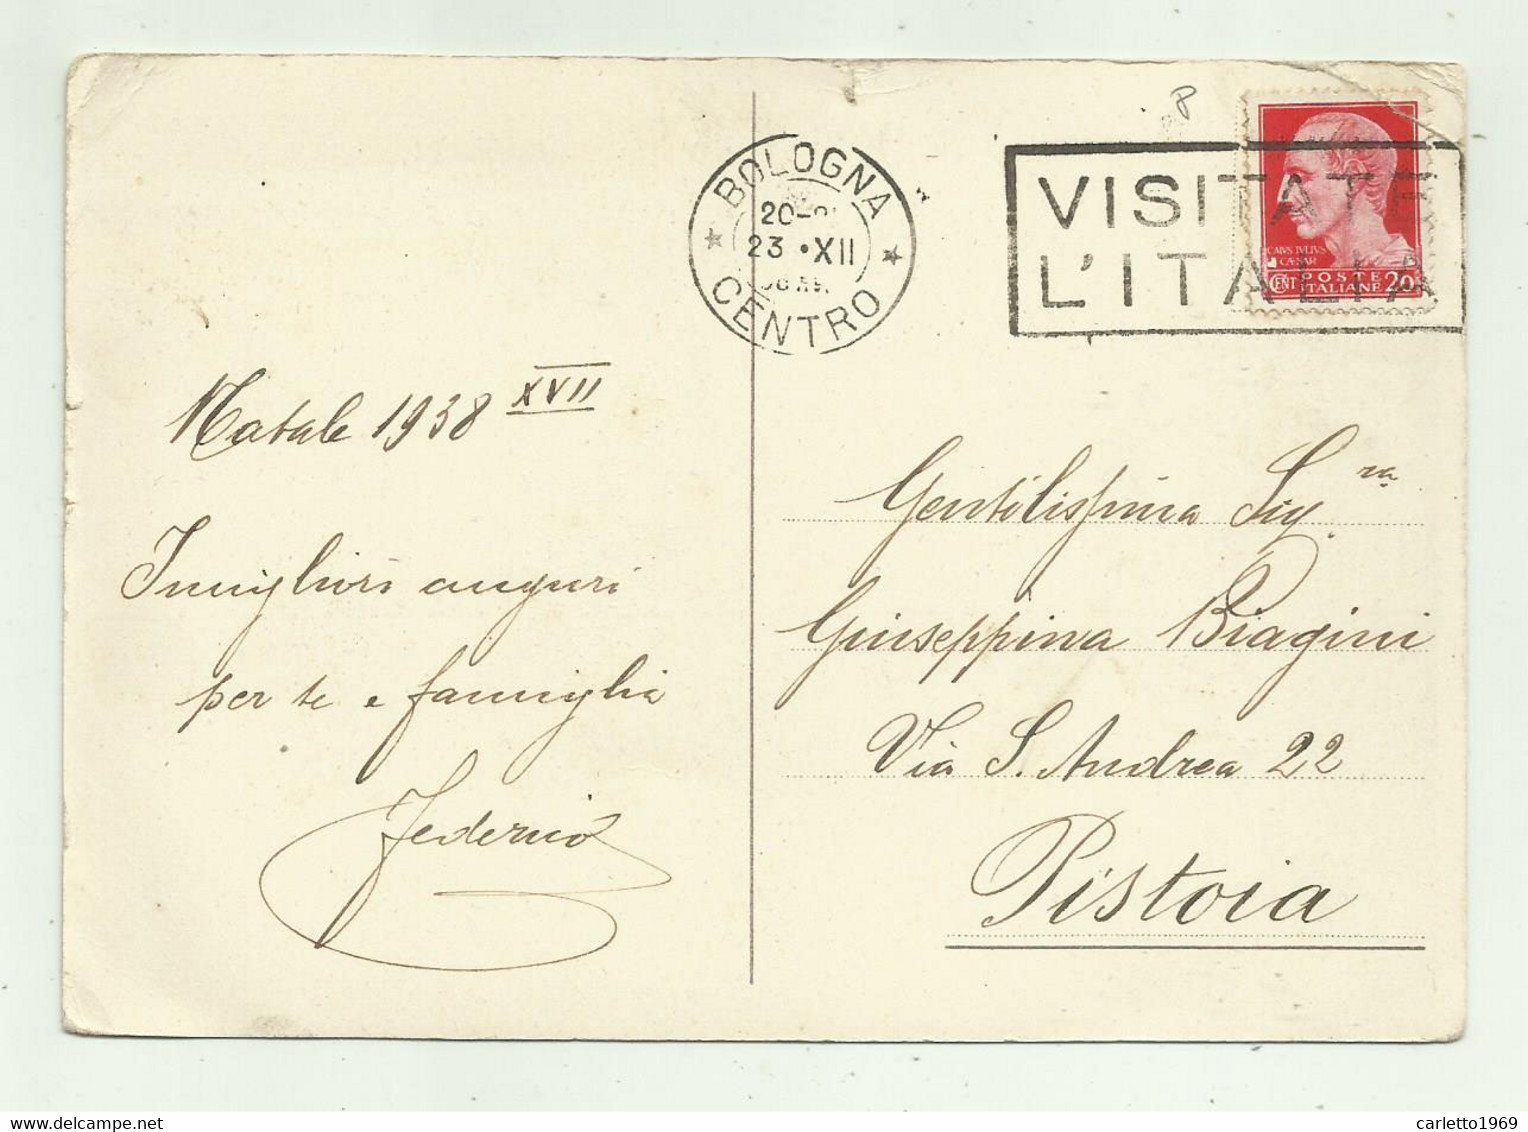 BOLOGNA
20-
23 • XII
CENTRO
VISITATE
L'ITALIA
CAIVS IVLIVS
CAESAR
CENT POSTE ITALIANE 20
8
Natale 1938 XVII
I migliori auguri
per te e famiglia
Federico
Gentilissima Sig.ra
Giuseppina Biagini
Via S. Andrea 22
Pistoia
carletto1969